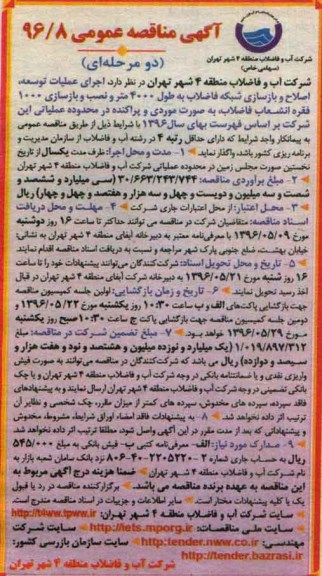 آگهی مناقصه عمومی ۹۶/۸
(دو مرحله‌ای)
شرکت آب و فاضلاب منطقه ۴ شهر تهران
(سهامی خاص)
شرکت آب و فاضلاب منطقه ۴ شهر تهران در نظر دارد، اجرای عملیات توسعه،
اصلاح و بازسازی شبکه فاضلاب به طول ۴۰۰۰ متر و نصب و بازسازی ۱۰۰۰
فقره انشعاب فاضلاب، به صورت موردی و پراکنده در محدوده عملیاتی این
شرکت بر اساس فهرست بهای سال ۱۳۹۶ با شرایط ذیل از طریق مناقصه عمومی
به پیمانکار واجد شرایط که دارای حداقل رتبه ۴ در رشته آب و فاضلاب از سازمان مدیریت و
برنامه ریزی کشور باشد، واگذار نماید. ۱- مدت و محل اجرا: ظرف مدت یکسال از تاریخ
نخستین صورت مجلس زمین در محدوده عملیاتی شرکت آب و فاضلاب منطقه ۴ شهر تهران
۲- مبلغ برآوردی مناقصه: ۳۰/۶۶۳/۲۴۳/۷۴۴ (سی میلیارد و ششصد و
شصت و سه میلیون و دویست و چهل و سه هزار و هفتصد و چهل و چهار) ریال
۳- محل اعتبار: از محل اعتبارات جاری شرکت ۴- مهلت و محل دریافت
اسناد مناقصه: متقاضیان شرکت در مناقصه می توانند حداکثر تا ساعت ۱۶ روز دوشنبه
مورخ ۱۳۹۶/۰۵/۰۹ با معرفی‌نامه معتبر به دبیرخانه آبفای منطقه ۴ شهر تهران به نشانی:
خیابان بهشت، ضلع جنوبی پارک شهر مراجعه و نسبت به دریافت اسناد مناقصه اقدام نمایند.
۵- تاریخ و محل تحویل اسناد: شرکت‌کنندگان می‌توانند پیشنهادات خود را تا ساعت
۱۶ روز شنبه مورخ ۱۳۹۶/۰۵/۲۱ به دبیرخانه شرکت آبفای منطقه ۴ شهر تهران در قبال
اخذ رسید تحویل نمایند. ۶- تاریخ و زمان بازگشایی: اولین جلسه کمیسیون مناقصه
جهت بازگشایی پاکت‌های الف و ب ساعت ۱۰:۳۰ روز یکشنبه مورخ ۱۳۹۶/۰۵/۲۲ و
دومین جلسه کمیسیون مناقصه جهت بازگشایی پاکت ج ساعت ۱۰:۳۰ صبح روز یکشنبه
مورخ ۱۳۹۶/۰۵/۲۹ خواهد بود. ۷- مبلغ تضمین شرکت در مناقصه: مبلغ
۱/۰۱۹/۸۹۷/۳۱۲ (یک میلیارد و نوزده میلیون و هشتصد و نود و هفت هزار و
سیصد و دوازده) ریال می باشد که شرکت‌کنندگان در مناقصه می‌توانند به صورت فیش
واریزی نقدی و یا ضمانتنامه بانکی در وجه آب و فاضلاب منطقه ۴ شهر تهران و یا چک
بانکی تضمینی در وجه شرکت آب و فاضلاب منطقه ۴ شهر تهران ارسال نمایند و به پیشنهادهای
فاقد سپرده، سپرده های مخدوش، سپرده های کمتر از میزان مقرر، چک شخصی و نظایر آن
ترتیب اثر داده نخواهد شد. ۸- به پیشنهادات فاقد امضاء اوراق شرایط، مشروط، مخدوش
و پیشنهاداتی که بعد از مدت مقرر در این آگهی واصل شود، مطلقا ترتیب اثر داده نخواهد شد.
۹- مدارک مورد نیاز: الف- معرفی‌نامه کتبی ب- فیش بانکی به مبلغ ۵۴۵/۰۰۰
ریال به حساب جاری شماره ۲-۲۲۰۵۲۲۰-۴۰-۸۰۶ نزد بانک سامان شعبه بازار به
نام شرکت آب و فاضلاب منطقه ۴ شهر تهران ضمنا هزینه درج آگهی مربوط به
این مناقصه به عهده برنده مناقصه می باشد. برگزارکننده مناقصه در رد یا قبول
یک یا کلیه پیشنهادات مختار است. سایر اطلاعات و جزییات در اسناد مناقصه مندرج است.
سایت شرکت آب و فاضلاب منطقه ۴ شهر تهران: http://t4ww.tpww.ir
سایت ملی مناقصات: http://iets.mporg.ir سایت شرکت
مهندسی: http:tender.nww.co.ir سایت سازمان بازرسی کشور:
http://tender.bazrasi.ir
شرکت آب و فاضلاب منطقه ۴ تهران